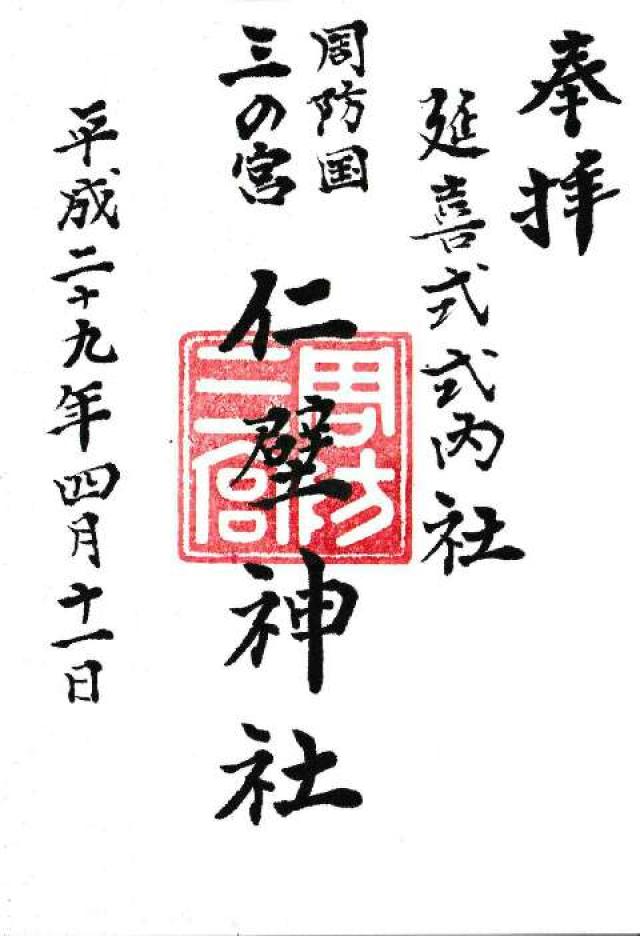 奉拝
延喜式式内社
周防国
三の宮
仁壁神社
周防
三宮
平成二十九年四月十一日